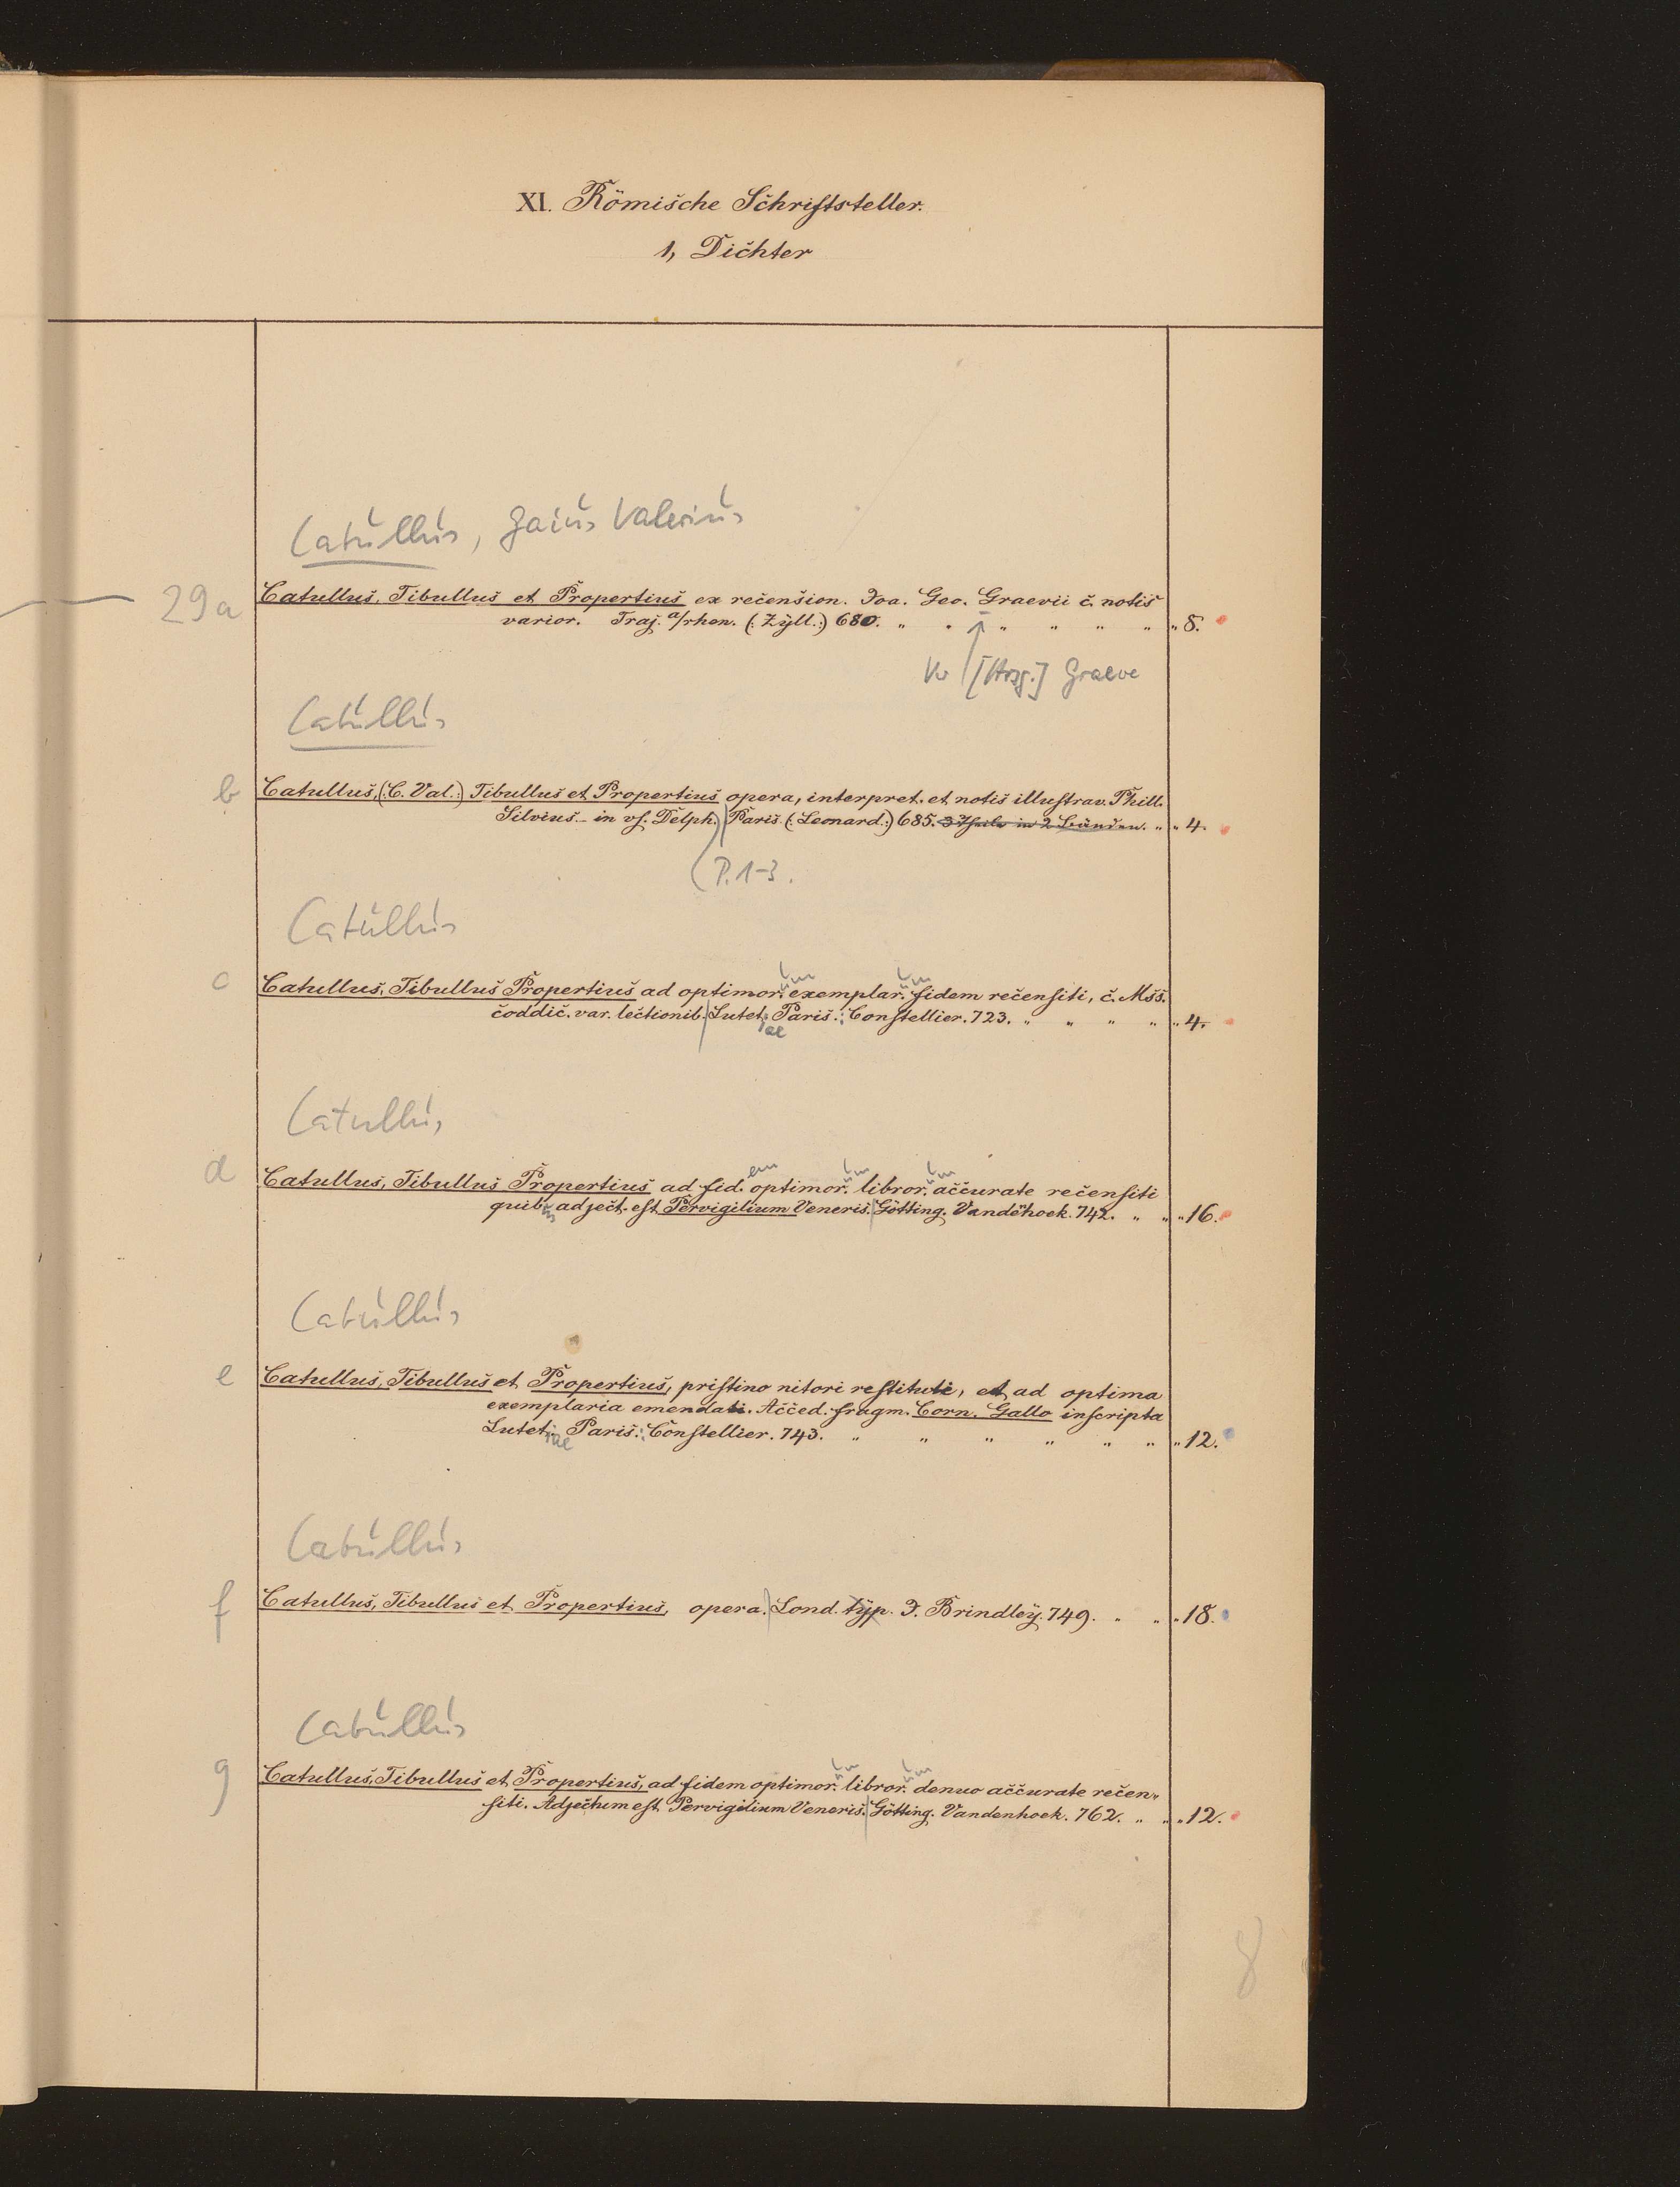 XI. Römische Schriftsteller.
1, Dichter
Catullus, Gaius Valerius
29a Catullus, Tibullus et Propertius ex recension. Joa. Geo. Graevii c. notis
varior. Traj. a/rhen. (: Zÿll.:) 680. „ „ „ „ „ „ „ 8.
[Hrsg.] Graeve
Catullus
b Catullus, (:C. Val.:) Tibullus et Propertius opera, interpret. et notis illustrav. Phill.
Silvius in us. Delph. Paris (: Leonard.:) 685. 3 Theile in 2 Bänden. „ „ 4.
(P. 1-3.
Catullus
c Catullus, Tibullus Propertius ad optimor.um exemplar.um fidem recensiti, c. Mss.
coddic. var. lectionib. Lutet.iae Paris.: Constellier. 723. „ „ „ „ „ 4.
Catullus
d Catullus, Tibullus Propertius ad fid.em optimor.um libror.um accurate recensiti
quib.us adject. est Pervigilium Veneris. Götting. Vandehoek. 742. „ „ „ 16.
Catullus
e Catullus, Tibullus et Propertius, pristino nitori restituti, et ad optima
exemplaria emendati. Acced. fragm. Corn. Gallo inscripta
Lutet.iae Paris.: Constellier. 743. „ „ „ „ „ „ „ 12.
Catullus
f Catullus, Tibullus et Propertius, opera. Lond. typ. J. Brindleÿ. 749. „ „ „ 18.
Catullus
g Catullus, Tibullus et Propertius, ad fidem optimor.um libror.um denuo accurate recen„
siti. Adjectum est Pervigilium Veneris. Götting. Vandenhoek. 762. „ „ „ 12.
8